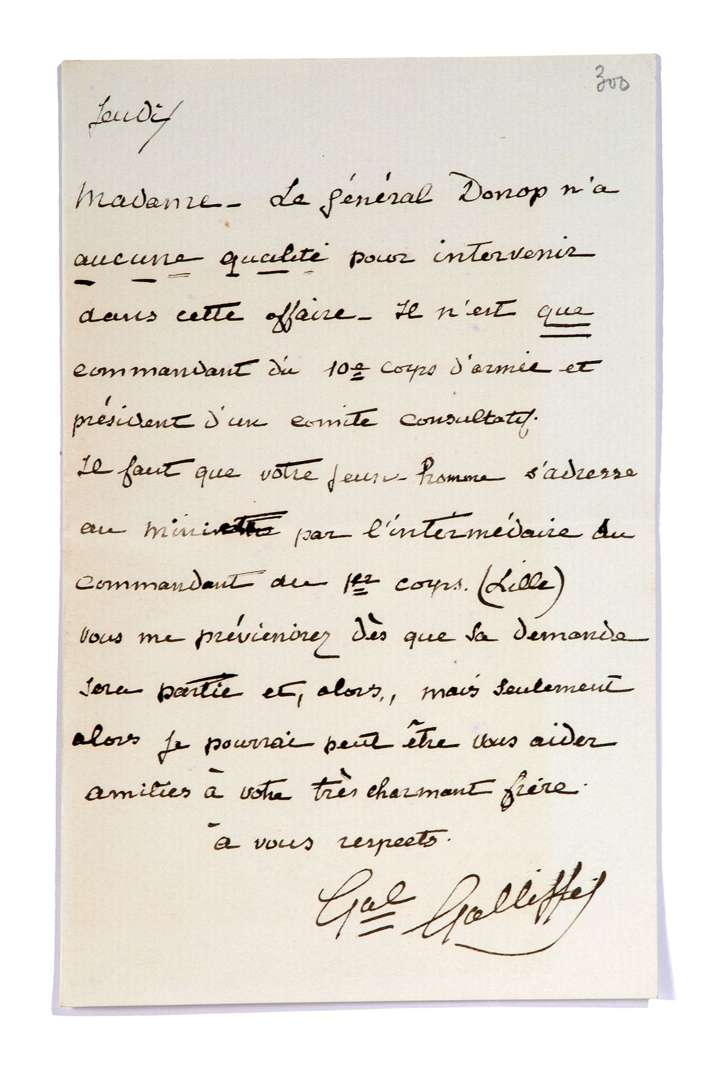 300
Jeudi
Madame - Le général Donop n'a
aucune qualité pour intervenir
dans cette affaire - Il n'est que
commandant du 10e corps d'armée et
président d'un comité consultatif.
Il faut que votre jeune homme s'adresse
au ministre par l'intermédaire du
commandant du 1er corps. (Lille)
vous me préviendrez dès que sa demande
sera partie et, alors,, mais seulement
alors je pourrai peut être vous aider
amitiés à votre très charmant frère.
à vous respects.
Gal Galliffet